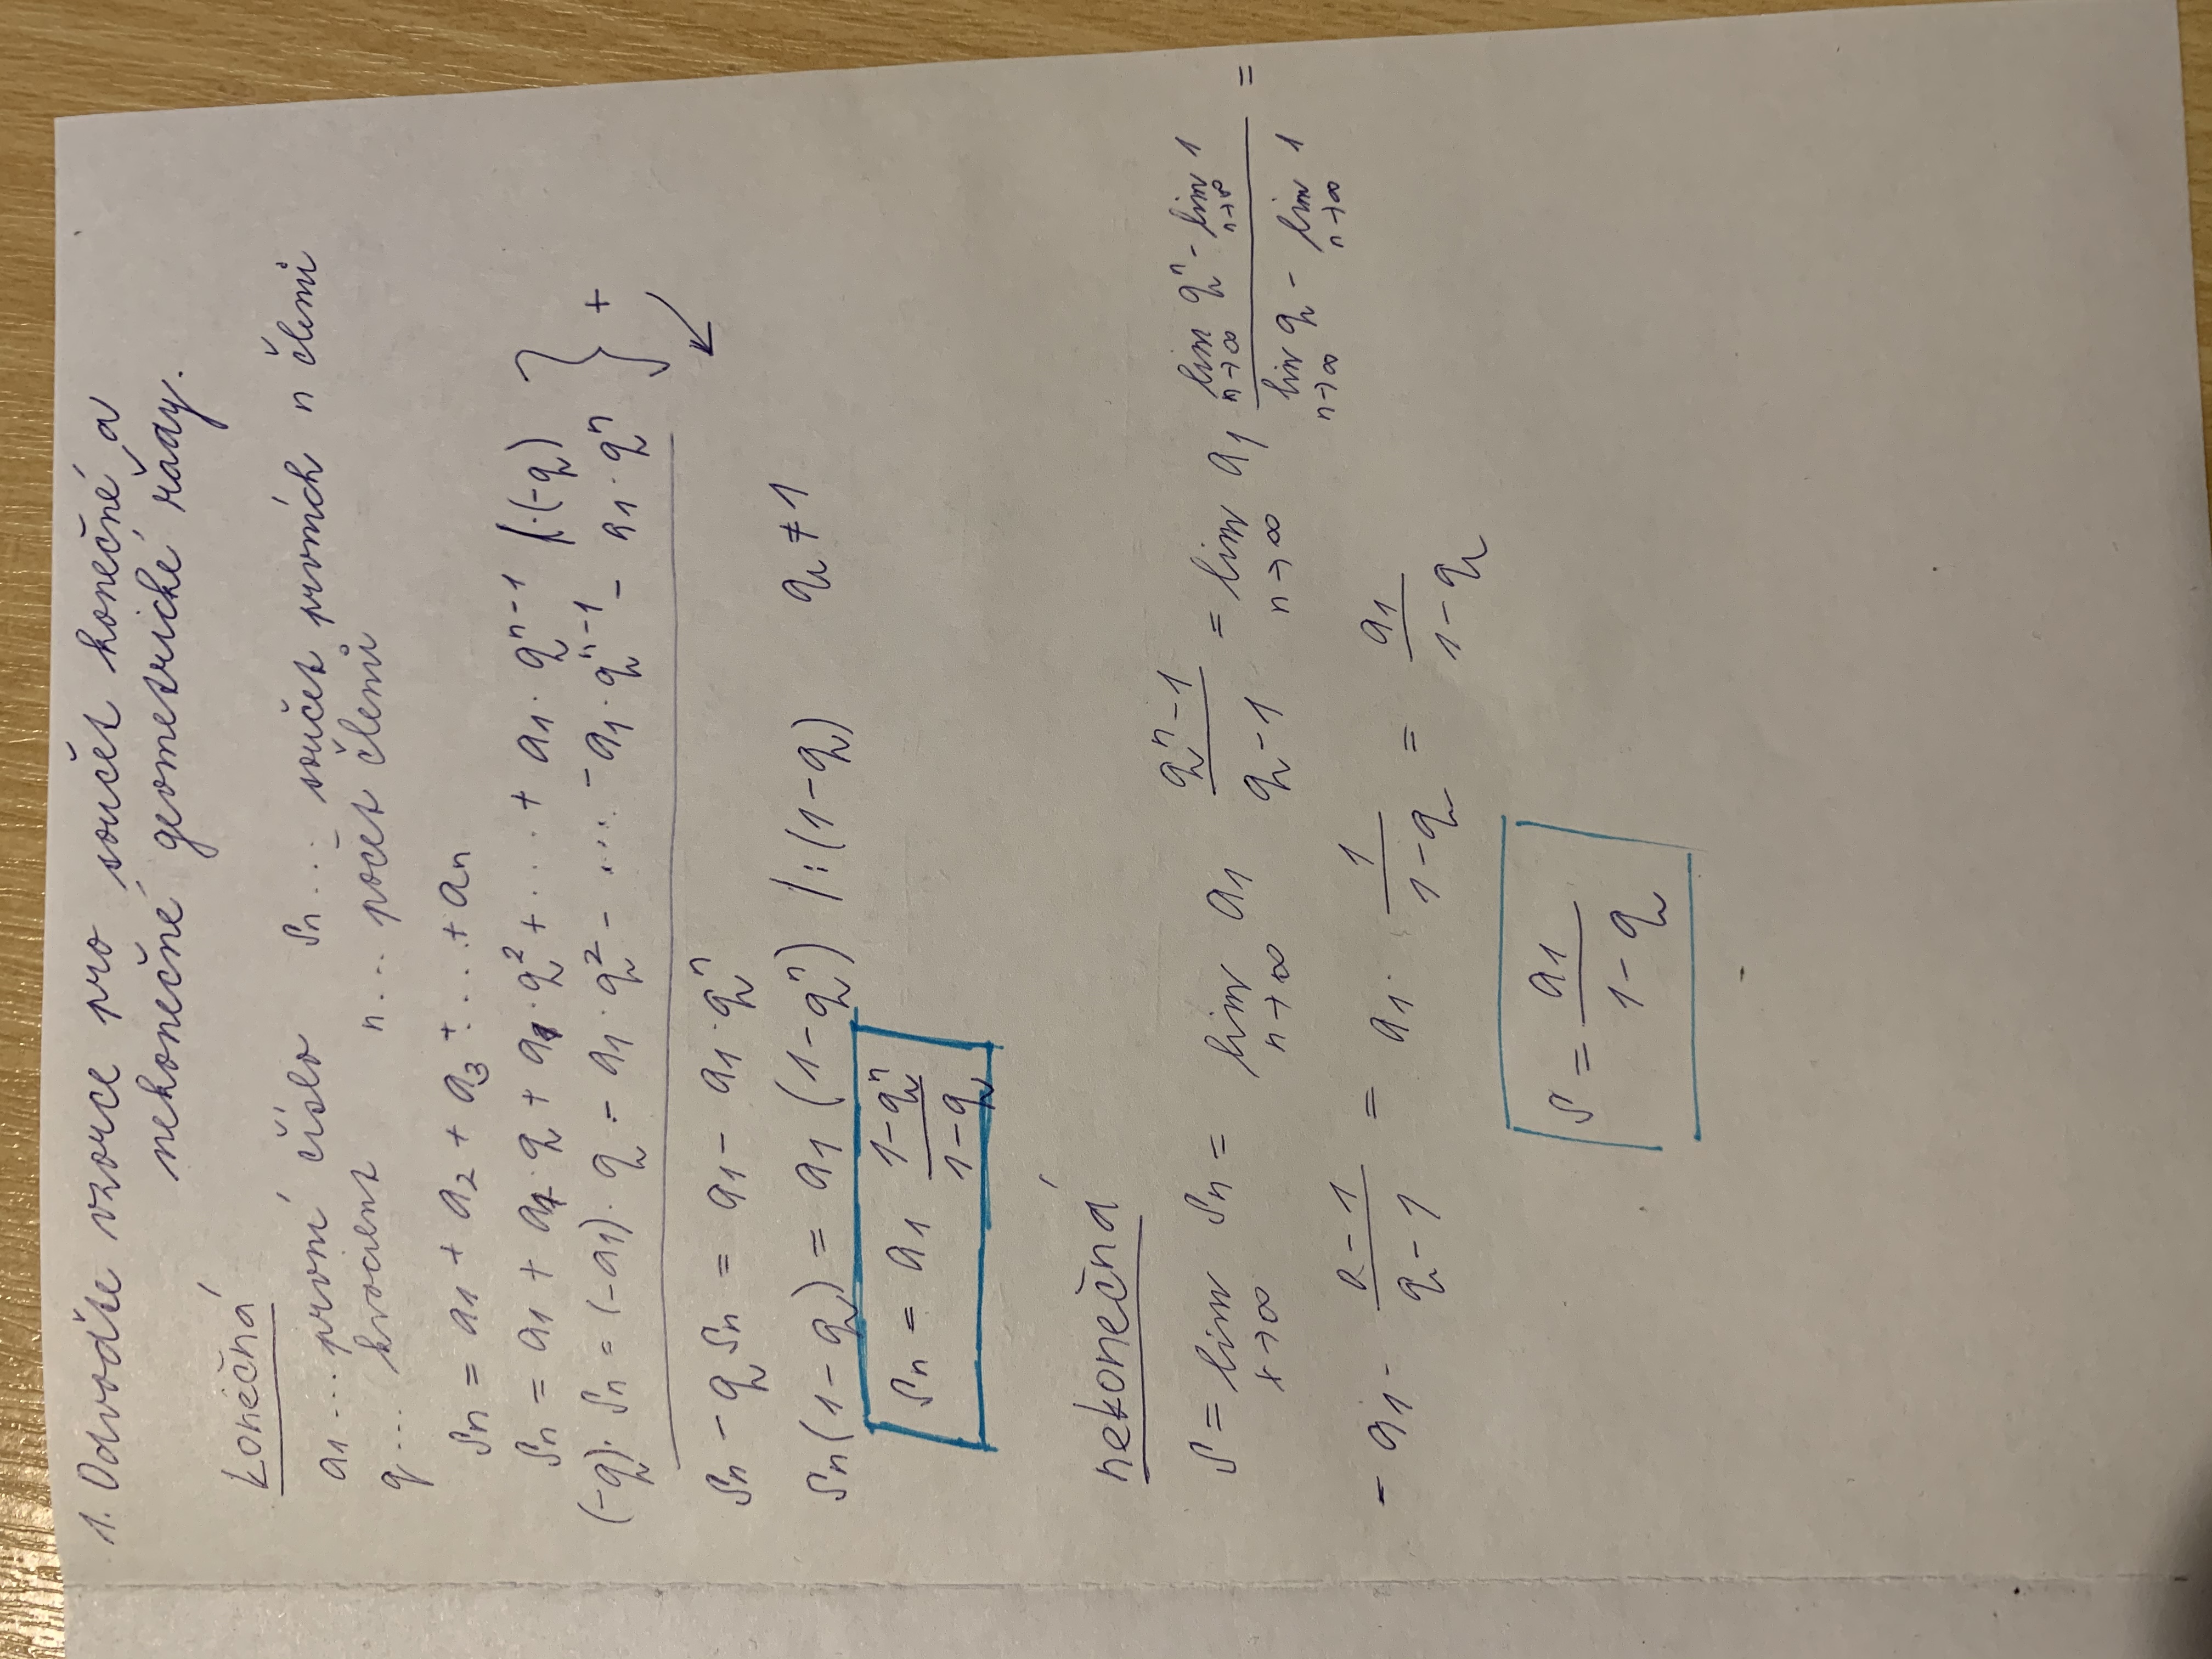 1. Odvoďte vzorce pro součet konečné a
nekonečné geometrické řady.
konečná
a1 ... první číslo sn ... součet prvních n členů
q ... kvocient n ... počet členů
sn = a1 + a2 + a3 + ... + an
sn = a1 + a1 · q + a1 · q² + ... + a1 · qⁿ⁻¹ /·(-q)
(-q) · sn = (-a1) · q - a1 · q² - ... - a1 · qⁿ⁻¹ - a1 · qⁿ } +
sn - q sn = a1 - a1 · qⁿ
sn (1 - q) = a1 (1 - qⁿ) /:(1-q) q ≠ 1
sn = a1 (1-qⁿ)/(1-q)
nekonečná
s = lim x→∞ sn = lim n→∞ a1 (qⁿ-1)/(q-1) = lim n→∞ a1 (lim n→∞ qⁿ - lim n→∞ 1)/(lim n→∞ q - lim n→∞ 1) =
= a1 · (0-1)/(q-1) = a1 · 1/(1-q) = a1/(1-q)
s = a1/(1-q)